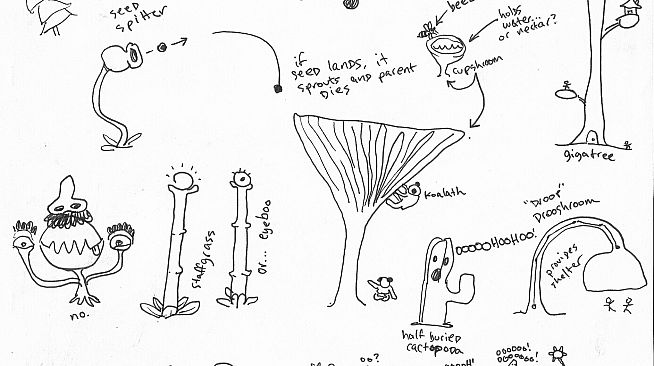 seed
spitter
if
seed lands, it
sprouts and parent
dies
bee
holds
water...
or nectar?
cupshroom
gigatree
no.
staffgrass
or... eyeboo
koalath
OOOOOHOOHOO!
half buried
cactopoda
"DROOP"
DROOSHROOM
provides
shelter
oo?